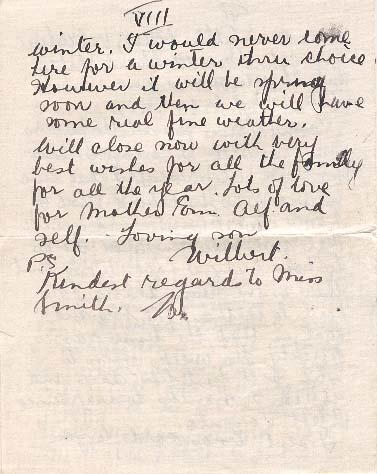 VIII
winter. I would never come
here for a winter thru choice.
However it will be spring
soon and then we will have
some real fine weather.
Will close now with very
best wishes for all the family
for all the year. Lots of love
for Mother Ern. Alf. and
self. Loving son
Wilbert.
P.S
Kindest regards to Miss
Smith.